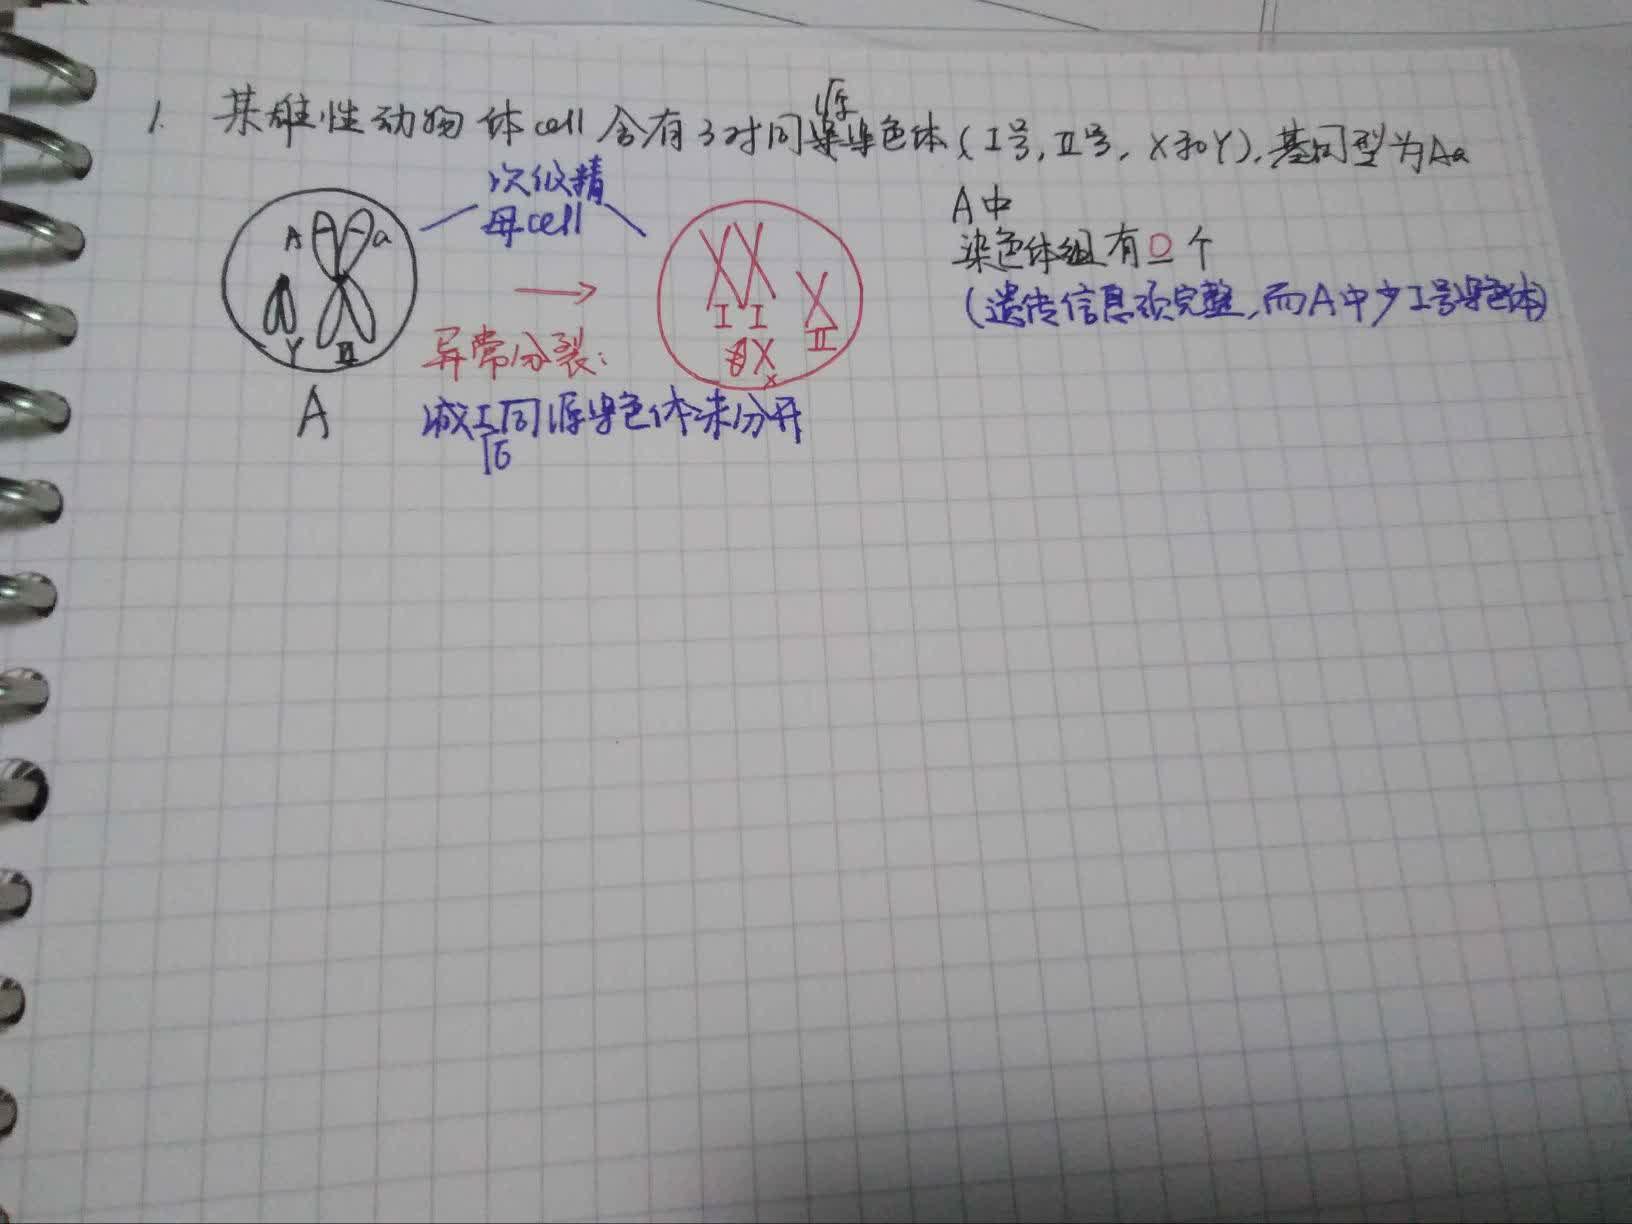 1. 某雄性动物体cell含有3对同源染色体(I号,II号,X和Y),基因型为Aa
次级精
母cell
A a
Y II
A
异常分裂:
减I后同源染色体未分开
I I
II
X
A中
染色体组有0个
(遗传信息须完整,而A中少I号染色体)